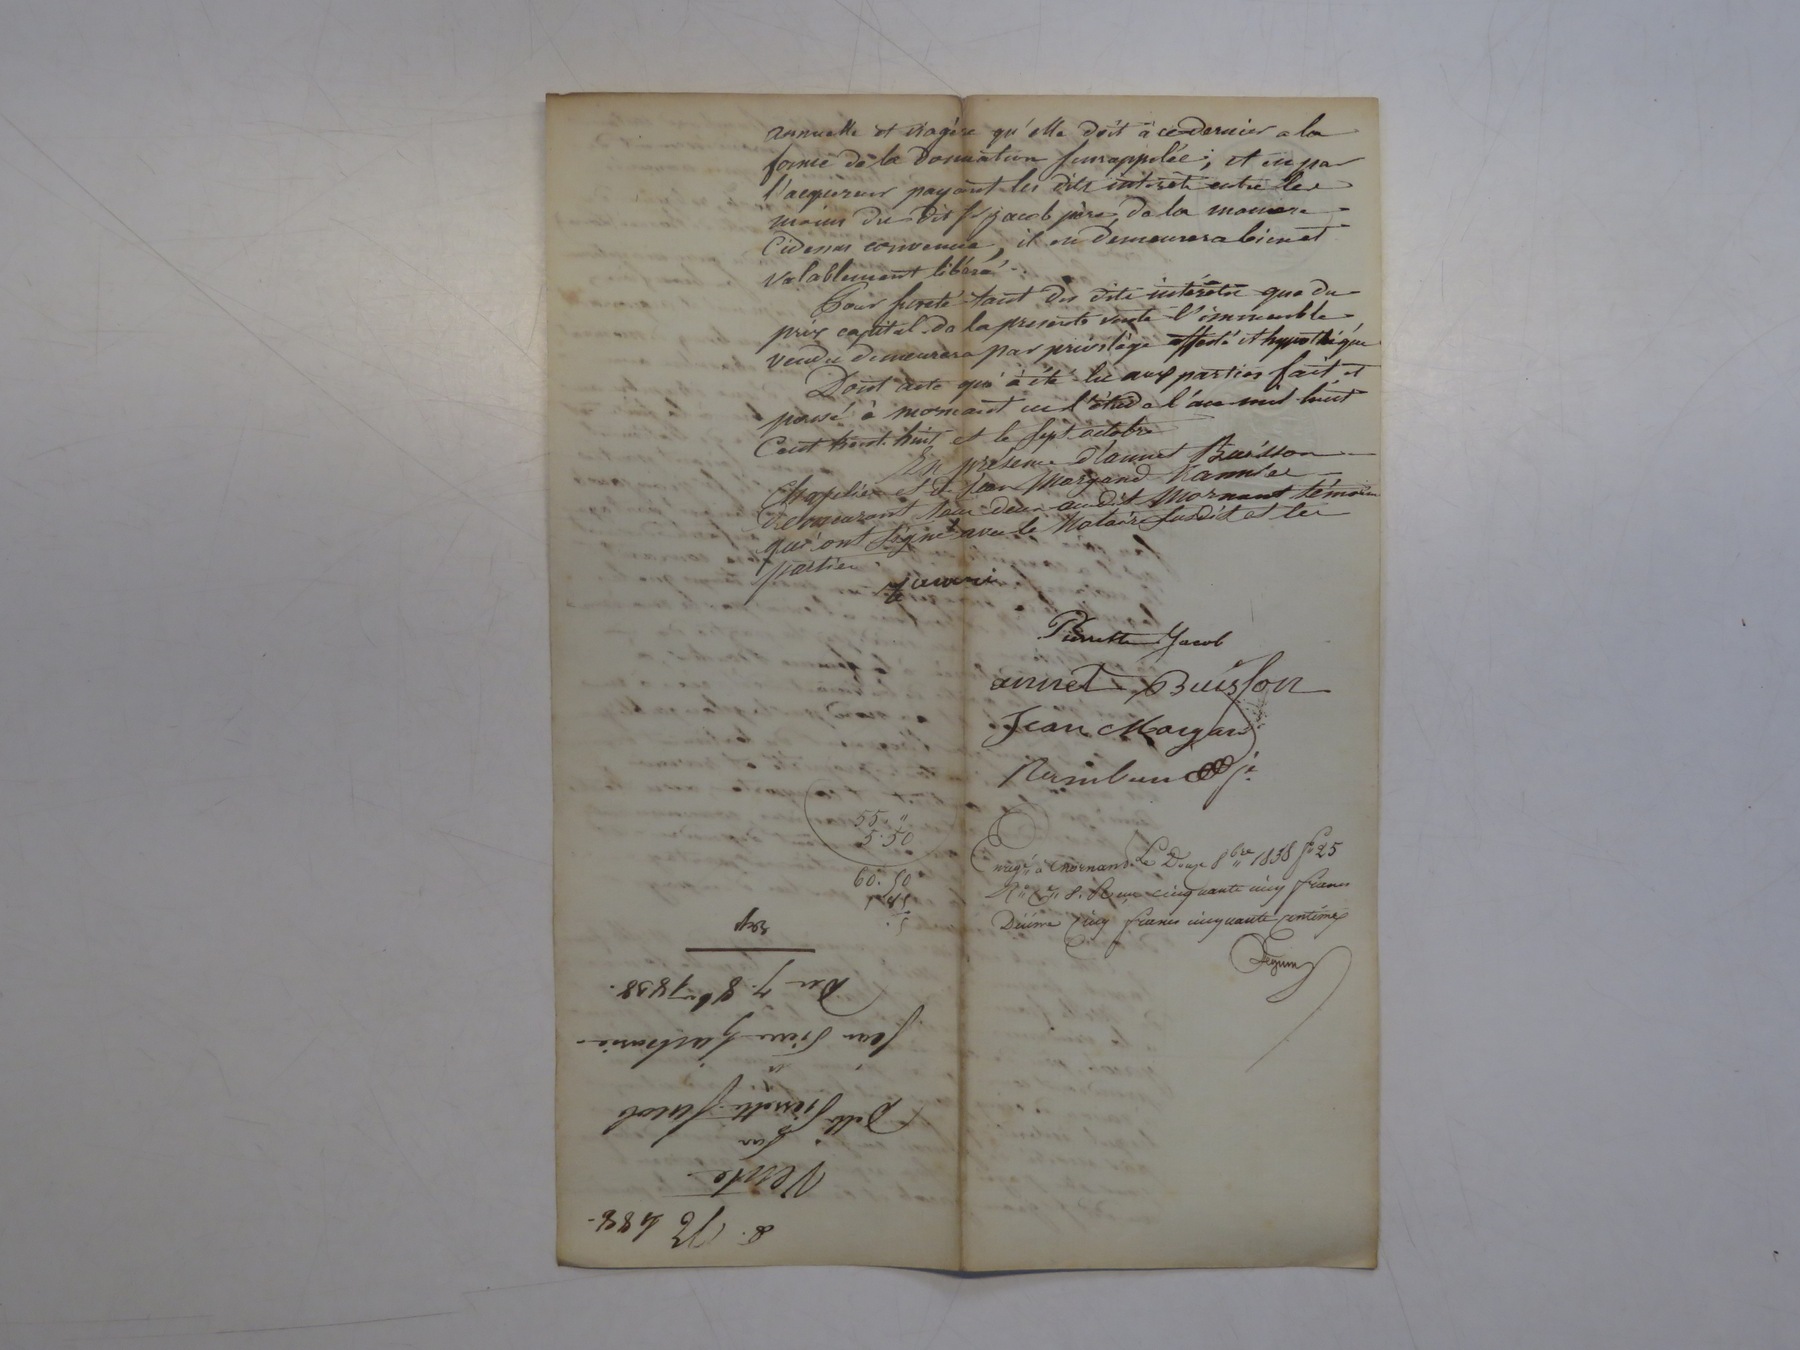 annuelle et viagère qu'elle doit à ce dernier a la
forme de la donnation susrappelée; et en par
l'acquereur payant les dits intérêts entre les
mains du dit Sr jacob père, de la maniere
Cidessus convenue, il en demeurera bien et
valablement libéré.
Pour sureté tant des dits intérêts que du
prix capital de la presente vente l'immeuble
vendu demeurera par privilège affecté et hypothéqué
Dont acte qui a été lu aux parties fait et
passé à mornant en l'étude l'an mil huit
Cent trent huit et le sept octobre
En présence d'annet Buisson
Chapelier et de Jean Morgand
demeurant tous deux audit Mornant témoins
qui ont signé avec le Notaire susdit et les
parties.
Pierrette Jacob
annet Buisson
Jean Morgand
55. "
5.50
60.50
Enregé à Mornant le Douze 8bre 1838 fo 25
Ro C. 8. Reçu cinquante cinq francs
Décime cinq francs cinquante centimes
Exp
Du 7. 8bre 1838.
Jean Pierre
à
Delle Pierrette Jacob
Par
Vente
No 488.